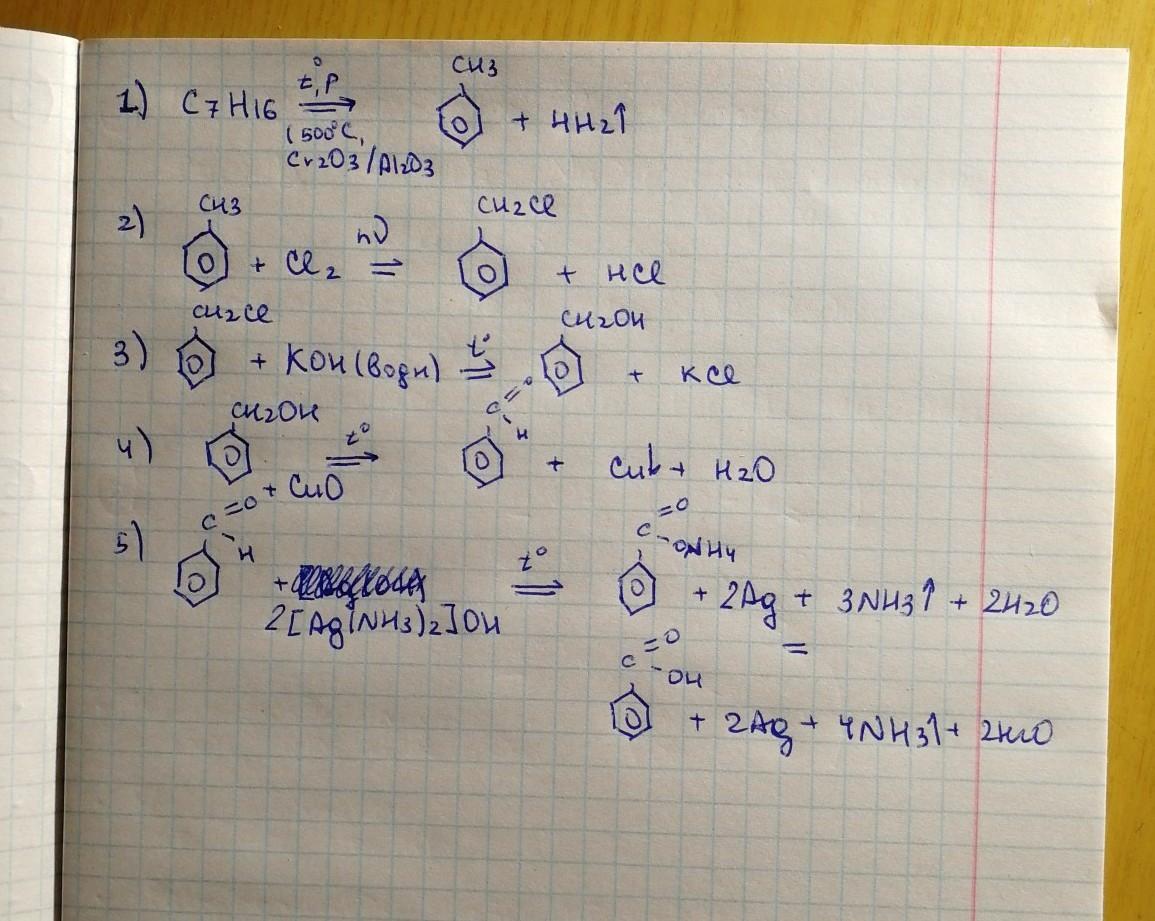 1) C7H16 t°,P ⟹ CH3 + 4H2↑
(500°C,
Cr2O3/Al2O3
2) CH3 + Cl2 hν ⟹ CH2Cl + HCl
3) CH2Cl + KOH(водн) t° ⟹ CH2OH + KCl
4) CH2OH + CuO t° ⟹ C=O H + Cu↓ + H2O
5) C=O -H + 2[Ag(NH3)2]OH t° ⟹ C=O -ONH4 + 2Ag + 3NH3↑ + 2H2O
=
C=O -OH + 2Ag + 4NH3↑ + 2H2O